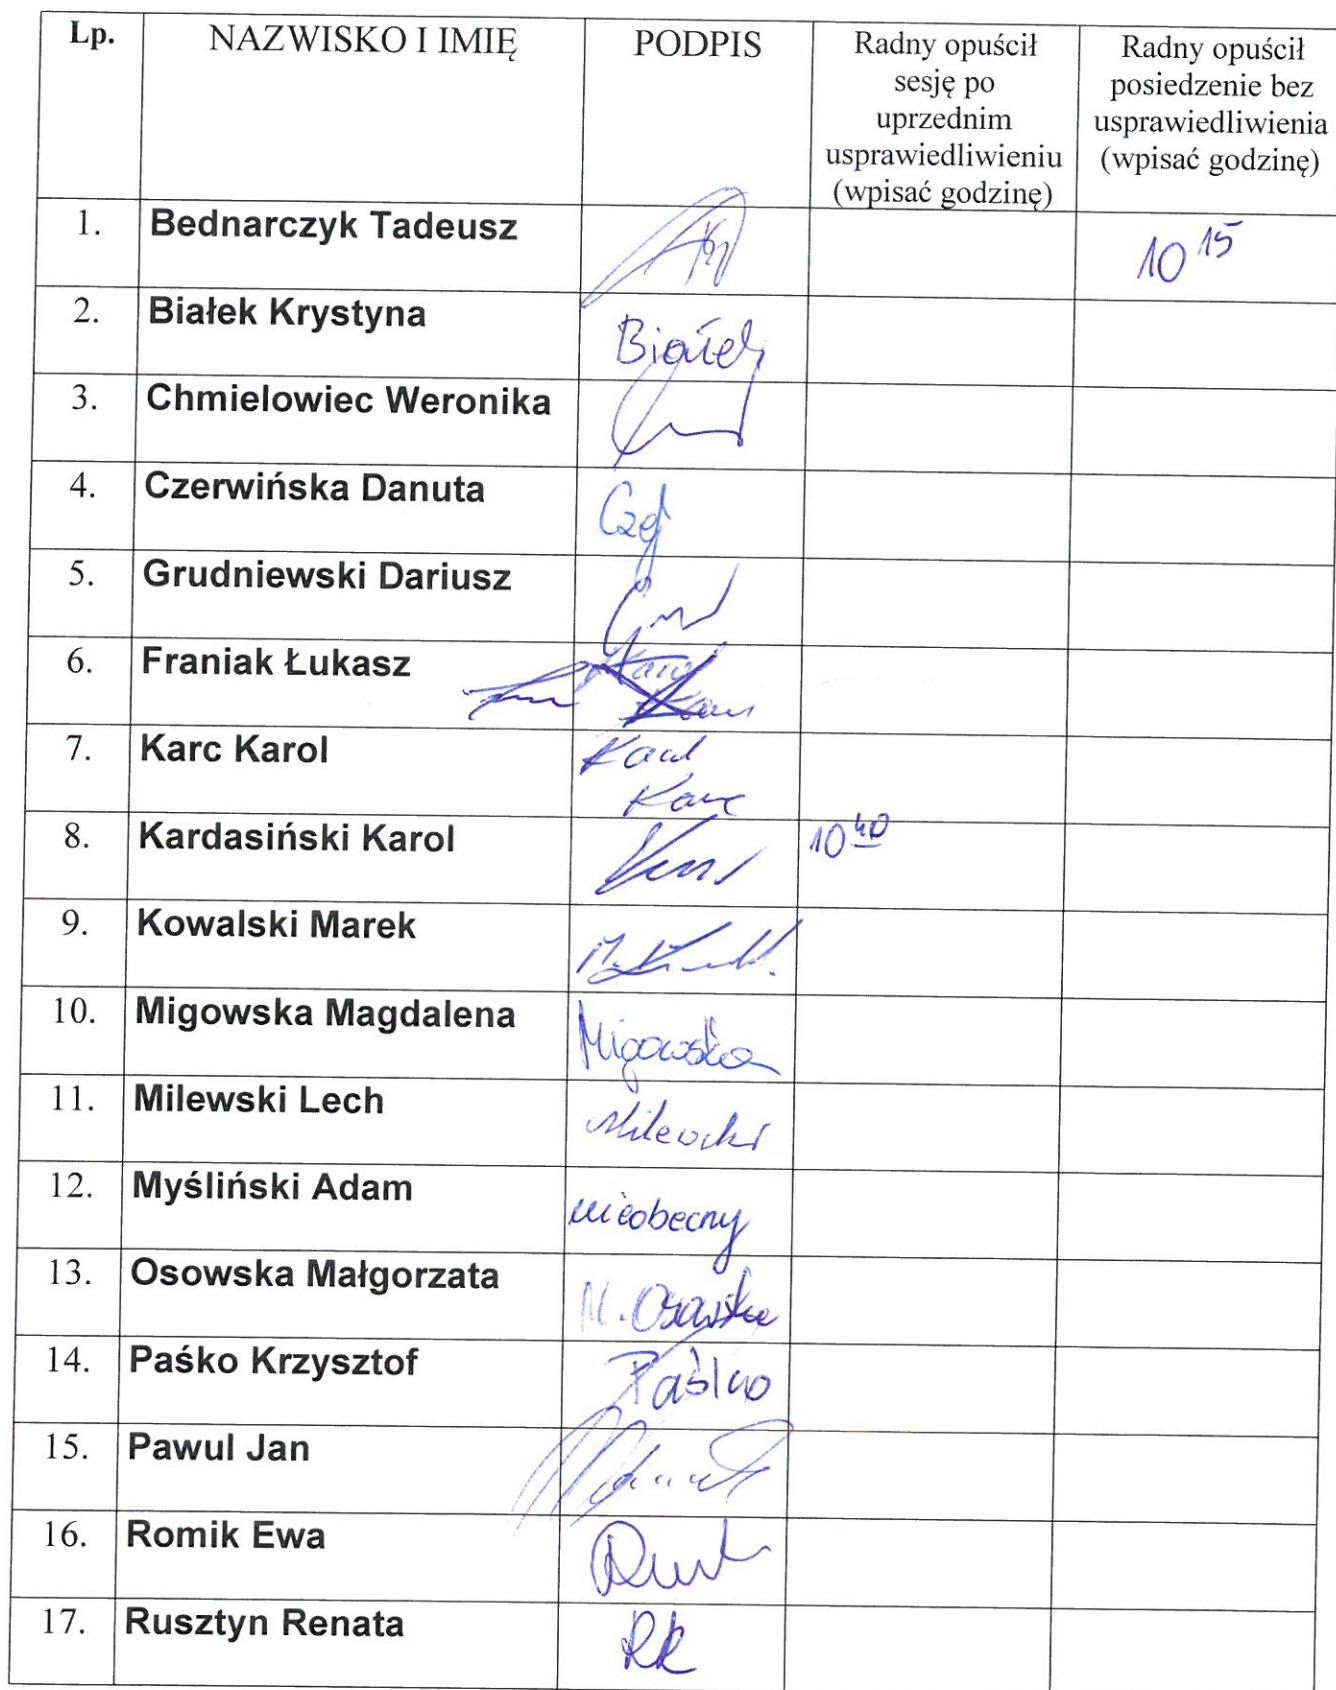 Lp.
NAZWISKO I IMIĘ
PODPIS
Radny opuścił
sesję po
uprzednim
usprawiedliwieniu
(wpisać godzinę)
Radny opuścił
posiedzenie bez
usprawiedliwienia
(wpisać godzinę)
1. Bednarczyk Tadeusz 10 15
2. Białek Krystyna Białek
3. Chmielowiec Weronika
4. Czerwińska Danuta
5. Grudniewski Dariusz
6. Franiak Łukasz
7. Karc Karol Karol
Karc
8. Kardasiński Karol 10 40
9. Kowalski Marek
10. Migowska Magdalena Migowska
11. Milewski Lech Milewski
12. Myśliński Adam nieobecny
13. Osowska Małgorzata M. Osowska
14. Paśko Krzysztof Paśko
15. Pawul Jan
16. Romik Ewa
17. Rusztyn Renata